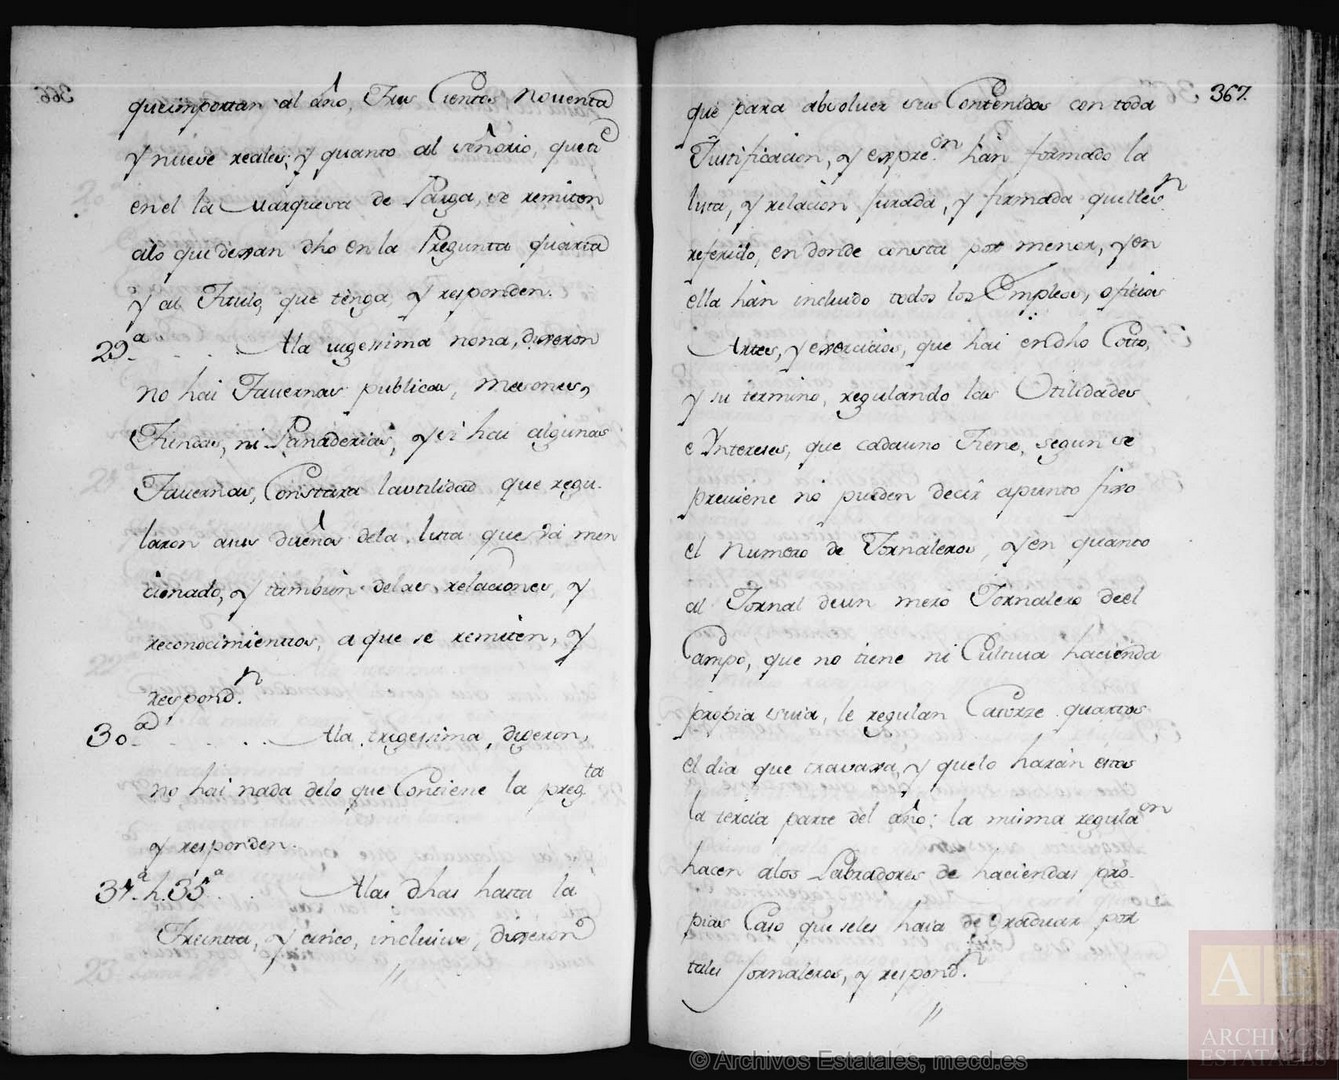 366
queimportan al año, Tres Cientos Noventa
y nueve reales; y quanto al señorio, que ti
en el la Marquesa de Parga, se remiten
alo que dexan dho en la Pregunta quarta
y al Titulo, que tenga, y responden.
29.ª Ala vigessima nona, dixeron
no hai Tauernas publicas, Mesones,
Tiendas, ni Panaderias, y si hai algunas
Tauernas, Constara lautilidad que regu-
laron asus dueños dela lista que vá men
cionado, y tambien delas relaciones, y
reconocimientos, a que se remiten, y
respond.n
30.ª Ala trigessima, dixeron,
no hai nada delo que Contiene la preg.ta
y responden.
31.ª h. 35.ª Alas dhas hasta la
Treintta, y cinco, inclusive, dixeron
367.
que para absoluer sus Contenidos con toda
Justificacion, y expre.on han formado la
lista, y relacion jurada, y firmada que lleu.n
referido, en donde consta por menor, y en
ella hán incluido todos los Empleos, oficios
Artes, y exercicios, que hai endho Cotto,
y su termino, regulando las Utilidades
e Yntereses, que cadauno Tiene, segun se
preuiene no pueden decir apunto fixo
el Numero de Jornaleros, y en quanto
al Jornal deun mero Jornalero deel
Campo, que no tiene ni Cultiua hacienda
propia suia, le regulan Catorze quartos
el dia que travaxa, y quelo harán éstos
la tercia parte del año; la misma regula.on
hacen alos Labradores de haciendas pro-
pias Caso que seles haia de Graduar por
tales Jornaleros, y respond.n
© Archivos Estatales, mecd.es
AE
ARCHIVOS
ESTATALES